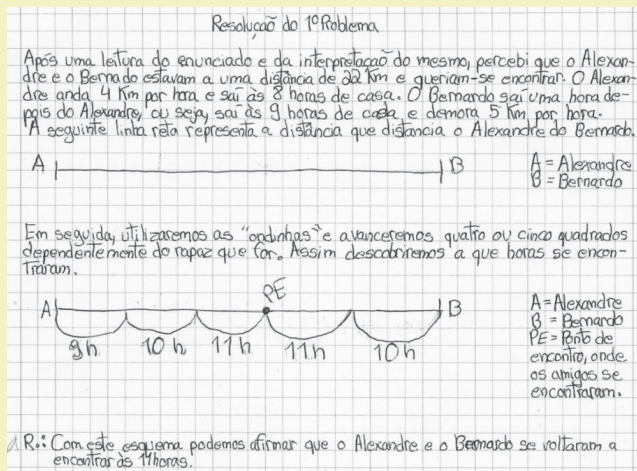 Resolução do 1º Problema
Após uma leitura do enunciado e da interpretação do mesmo, percebi que o Alexan-
dre e o Bernado estavam a uma distância de 22 Km e queriam-se encontrar. O Alexan-
dre anda 4 Km por hora e sai às 8 horas de casa. O Bernardo sai uma hora de-
pois do Alexandre, ou seja, sai às 9 horas de casa, e demora 5 Km por hora.
A seguinte linha reta representa a distância que distancia o Alexandre do Bernardo.
A B
A = Alexandre
B = Bernardo
Em seguida, utilizaremos as "ondinhas" e avançeremos quatro ou cinco quadrados
dependentemente do rapaz que for. Assim descobriremos a que horas se encon-
traram.
PE
A B
9h 10h 11h 11h 10h
A = Alexandre
B = Bernardo
PE = Ponto de
encontro, onde
os amigos se
encontraram.
R.: Com este esquema podemos afirmar que o Alexandre e o Bernardo se voltaram a
encontrar às 11horas.